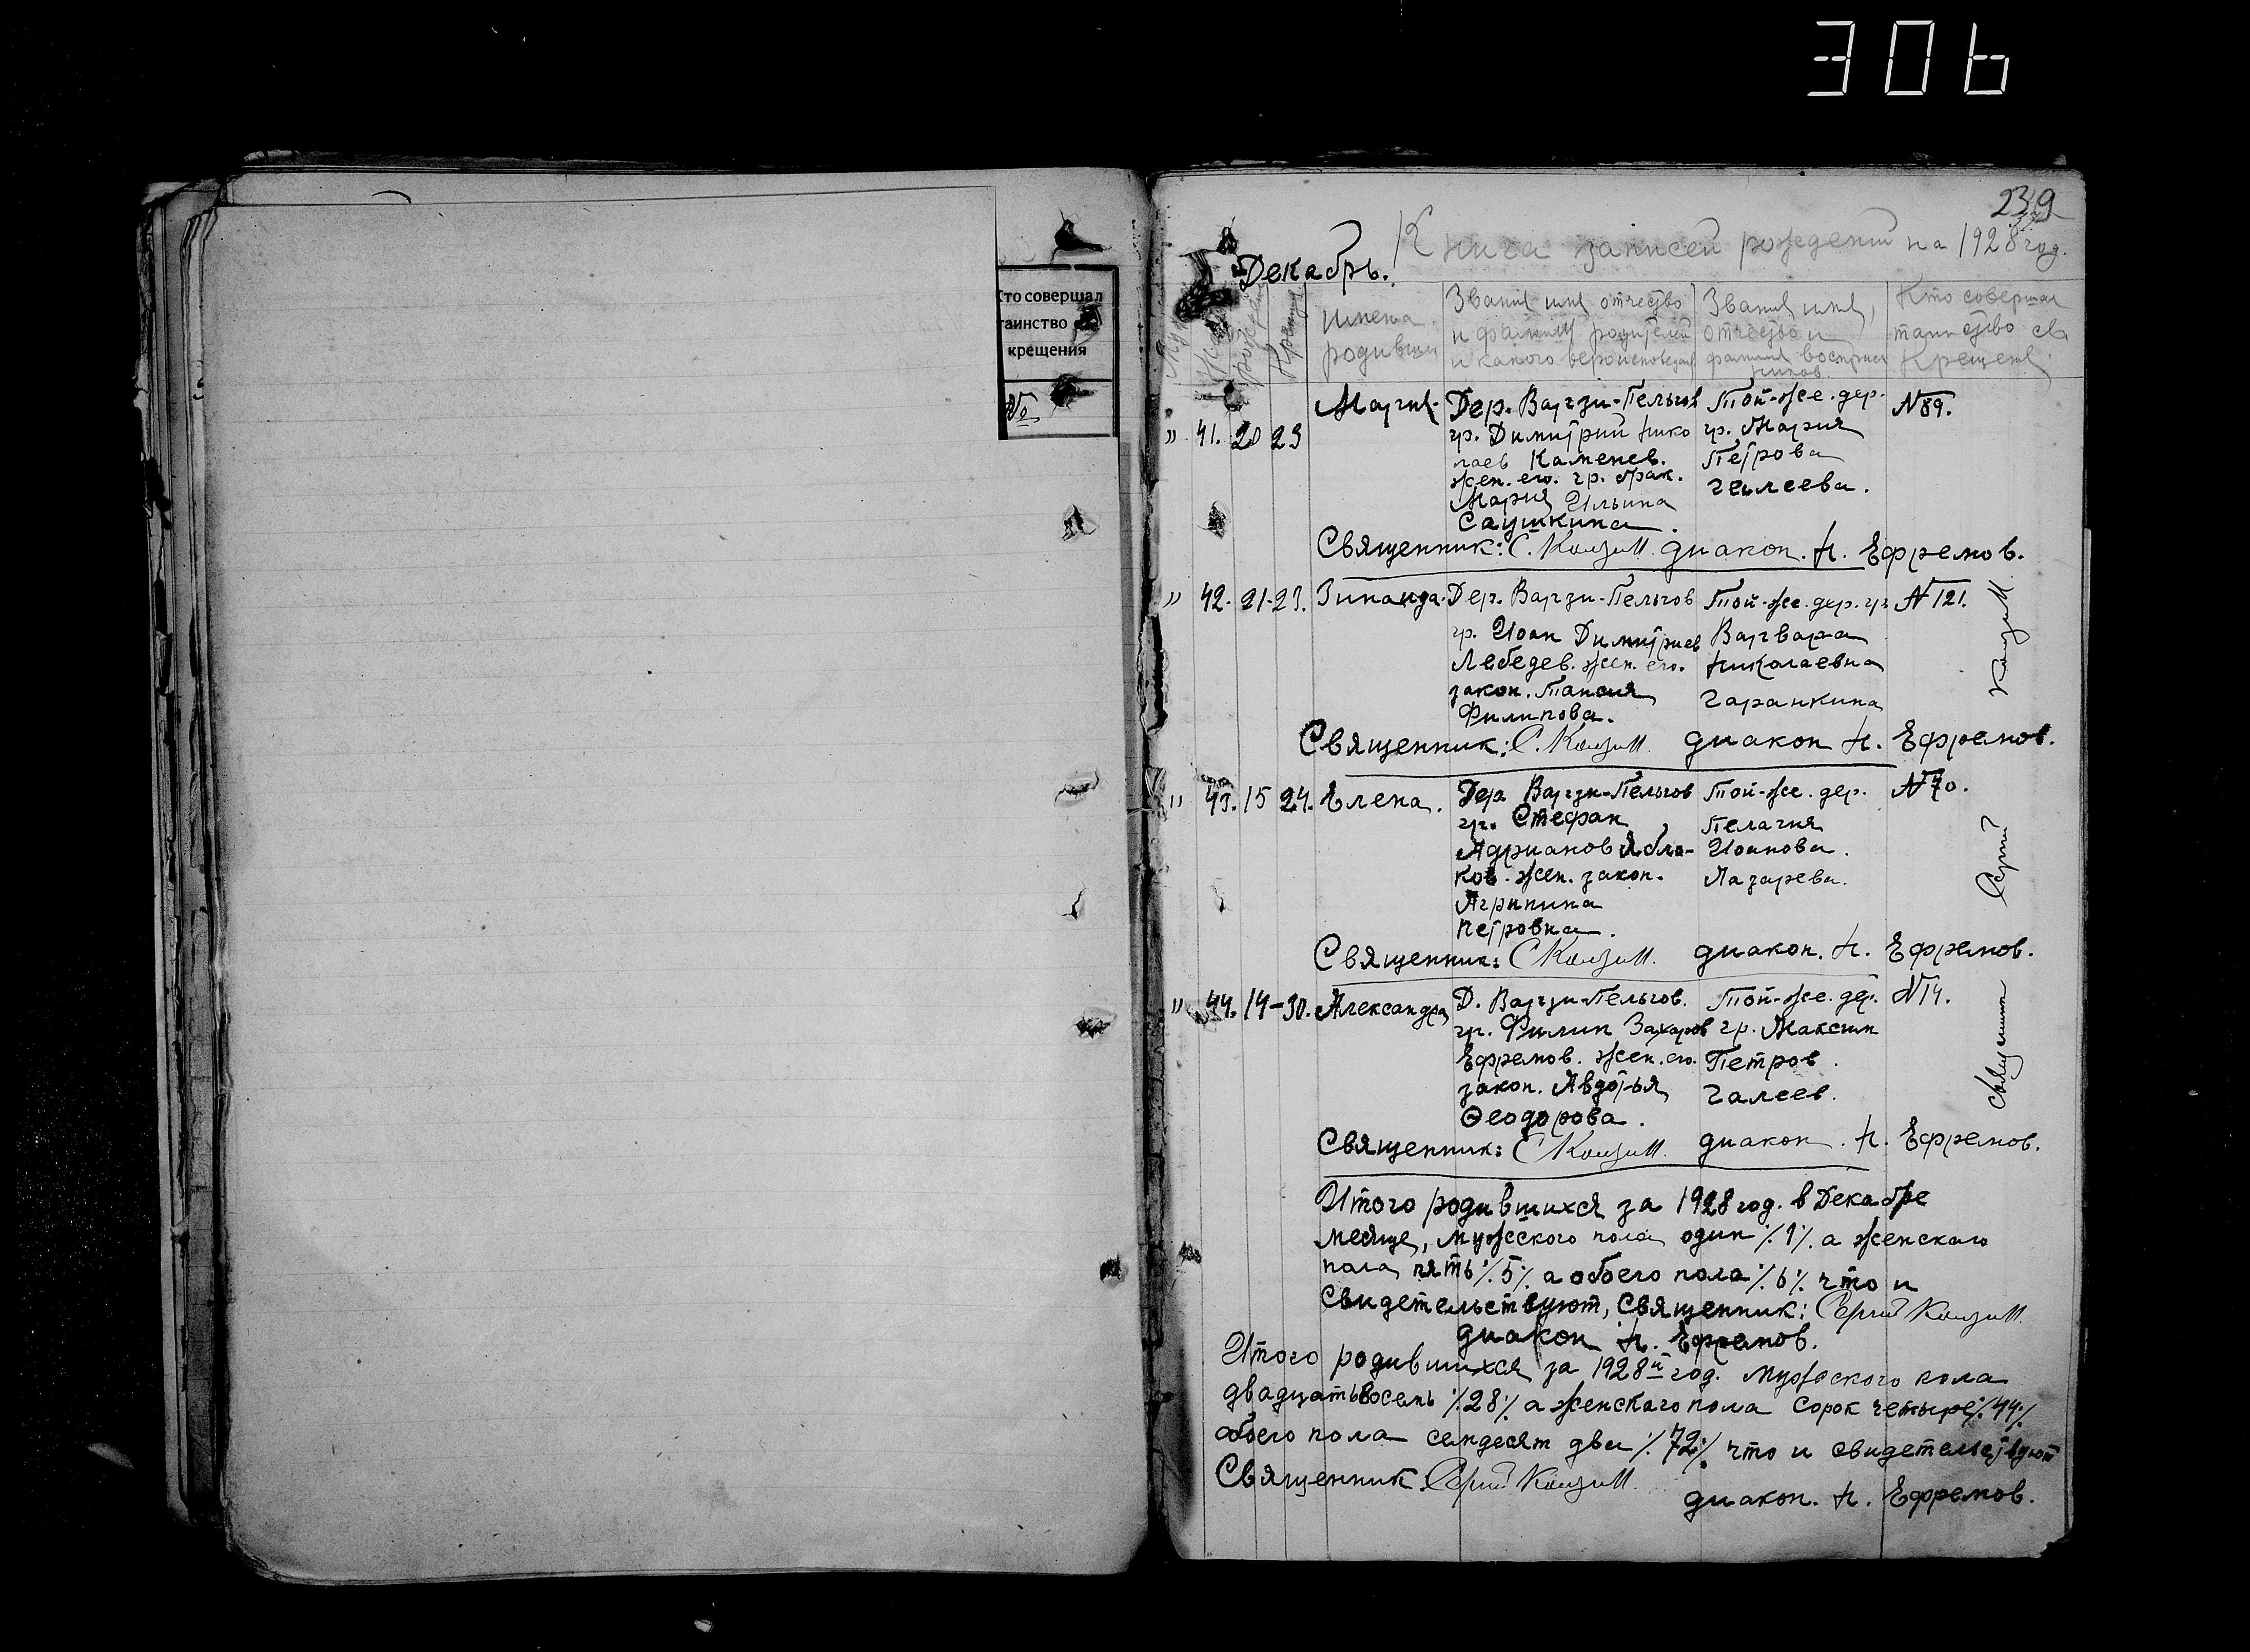 306
Кто совершал
таинство
крещения
№
239
Книга записей рождений на 1928 год.
Декабрь.
Имена родивши
Звания имя отчество и фамилия родителей и какого вероисповедан
Звания имя, отчество и фамилия восприем ников
Кто совершал таинство св. Крещения
" 41. 20 23
Мария.
Дер. Варзи-Пельгов
гр. Димитрий Нико
лаев Каменев.
жен. его. гр. брак.
Мария Ильина
Саушкина.
Той-же. дер.
гр. Мария
Петрова
Галеева.
№ 89.
Священник: С. диакон. Н. Ефремов.
" 42. 21-23. Зинаида.
Дер. Варзи-Пельгов
гр. Иоан Димитриев
Лебедев. жен. его.
закон. Таисия
Филипова.
Той-же. дер. гр
Варвара
Николаевна
Гаранкина
№ 121.
Священник: С. диакон Н. Ефремов.
" 43. 15 24. Елена.
Дер. Варзи-Пельгов
гр. Стефан
Адрианов Ябло-
ков. жен. закон.
Агрипина
Петровна.
Той-же. дер.
Пелагия
Иоанова.
Лазарева.
№ 70.
Священник: С диакон. Н. Ефремов.
" 44. 14-30. Александра
Д. Варзи-Пельгов.
гр. Филип Захаров
Ефремов. жен. его.
закон. Авдотья
Ѳеодорова.
Той-же. дер.
гр. Максим
Петров.
Галеев.
№ 14.
Священник: С диакон. Н. Ефремов.
Священник Сергий
Итого родившихся за 1928 год. в Декабре
месяце, мужского пола один ⁒1⁒ а женскаго
пола пять ⁒5⁒ а обоего пола ⁒6⁒ что и
Свидетельствуют, Священник: Сергий
диакон Н. Ефремов.
Итого родившихся за 1928й год. мужского пола
двадцать восемь ⁒28⁒ а женскаго пола сорок четыре ⁒44⁒
обоего пола семдесят два ⁒72⁒ что и свидетельствуют
Священник. Сергий
диакон. Н. Ефремов.